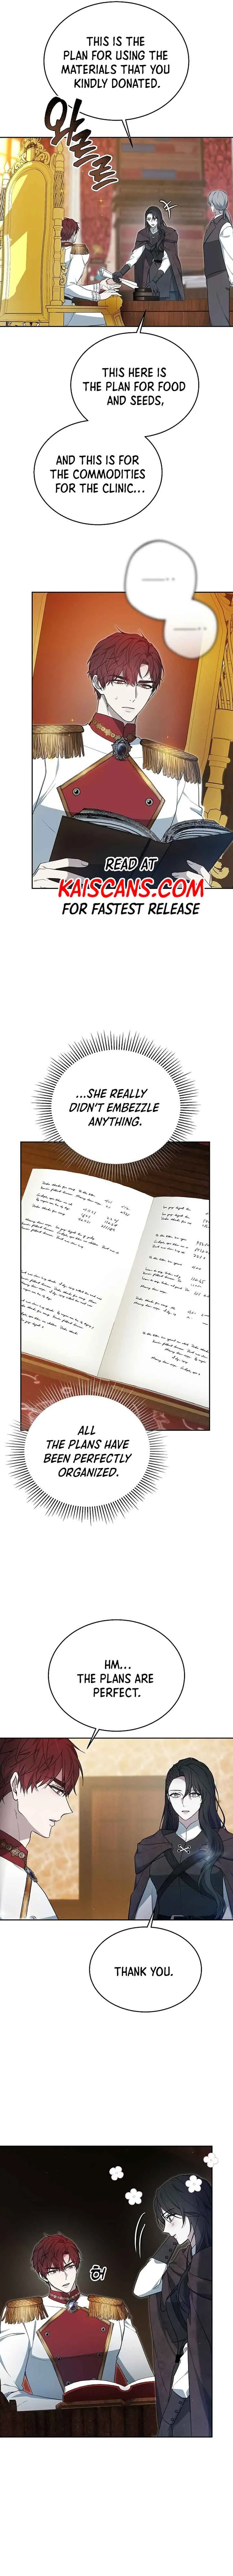 THIS IS THE
PLAN FOR USING THE
MATERIALS THAT YOU
KINDLY DONATED.
와르르
THIS HERE IS
THE PLAN FOR FOOD
AND SEEDS,
AND THIS IS FOR
THE COMMODITIES
FOR THE CLINIC...
READ AT
KAISCANS.COM
FOR FASTEST RELEASE
...SHE REALLY
DIDN'T EMBEZZLE
ANYTHING.
ALL
THE PLANS HAVE
BEEN PERFECTLY
ORGANIZED.
HM...
THE PLANS ARE
PERFECT.
THANK YOU.